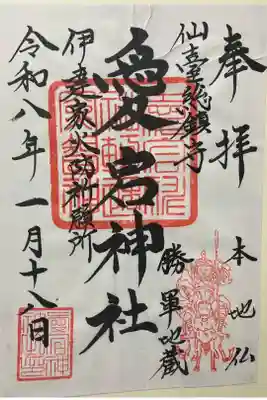 奉拝
本地仏
勝軍地蔵
仙臺総願寺
愛宕神社
伊達家火防祈願所
令和八年一月十八日